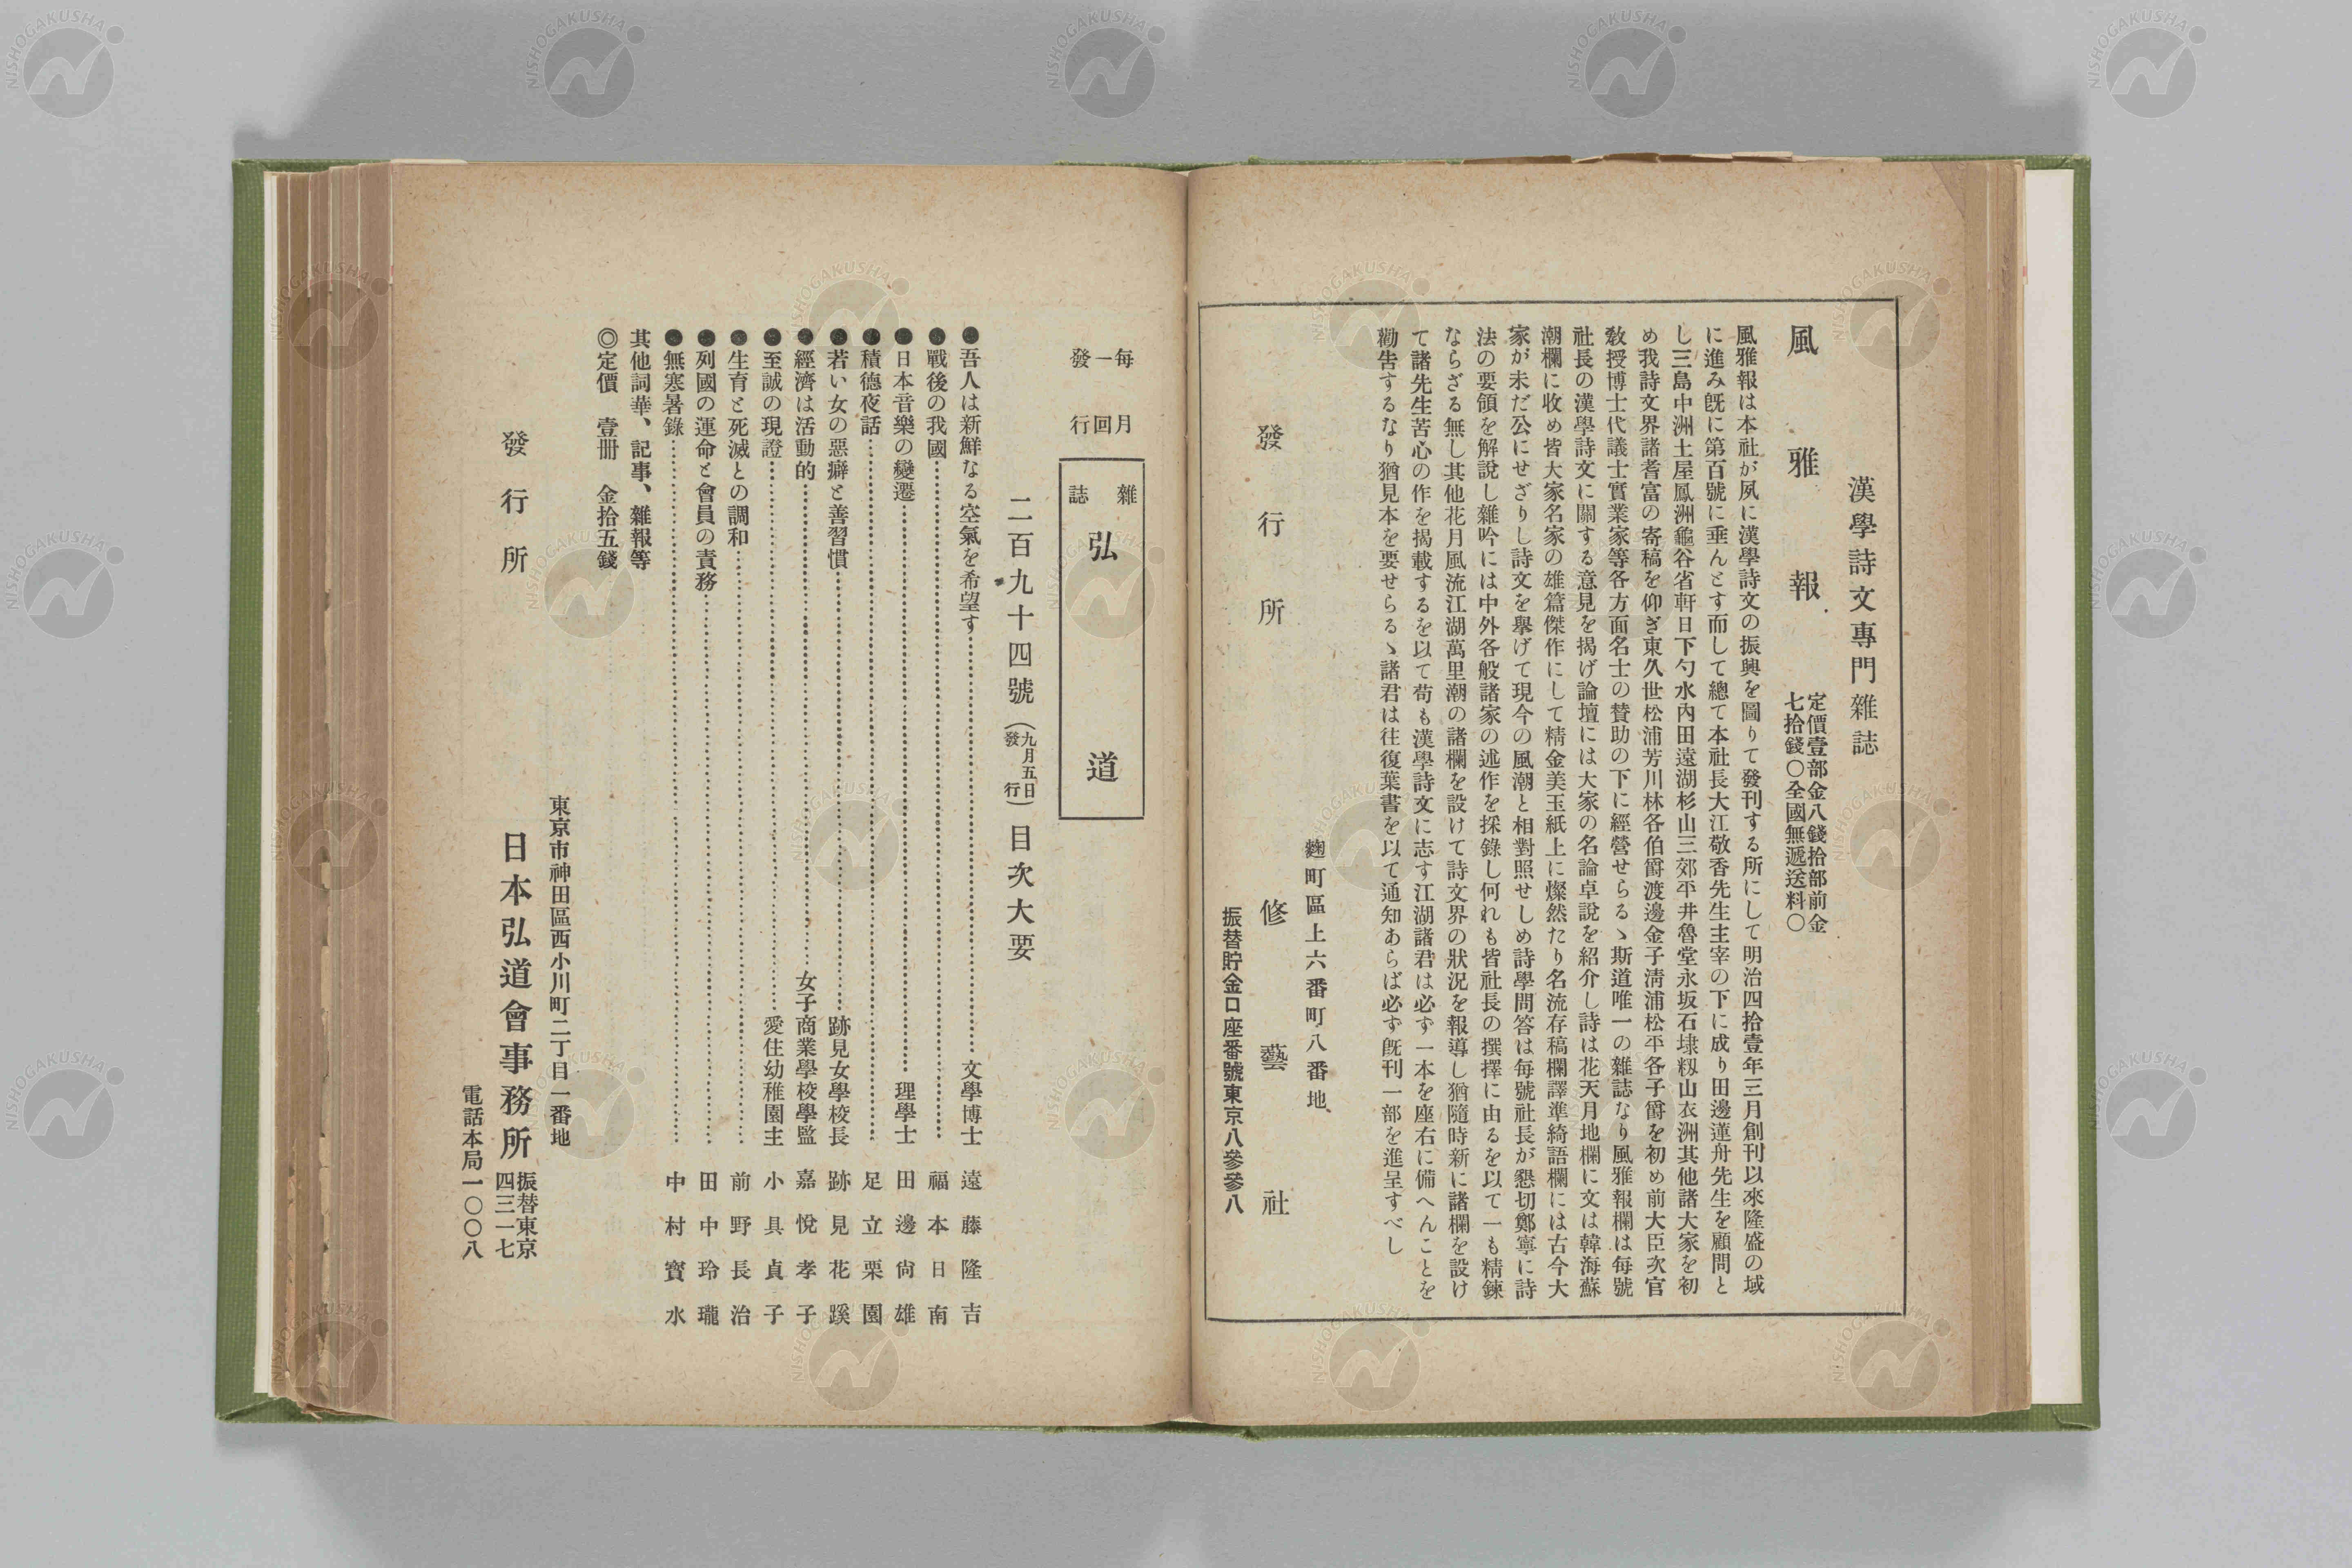 漢學詩文專門雜誌
風雅報
定價壹部金八錢拾部前金
七拾錢〇全國無遞送料〇
風雅報は本社が夙に漢學詩文の振興を圖りて發刊する所にして明治四拾壹年三月創刊以來隆盛の域
に進み既に第百號に垂んとす而して總て本社長大江敬香先生主宰の下に成り田邊蓮舟先生を顧問と
し三島中洲土屋鳳洲龜谷省軒日下勺水內田遠湖杉山三郊平井魯堂永坂石埭籾山衣洲其他諸大家を初
め我詩文界諸耆富の寄稿を仰ぎ東久世松浦芳川林各伯爵渡邊金子淸浦松平各子爵を初め前大臣次官
敎授博士代議士實業家等各方面名士の賛助の下に經營せらるゝ斯道唯一の雜誌なり風雅報欄は每號
社長の漢學詩文に關する意見を揭げ論壇には大家の名論卓說を紹介し詩は花天月地欄に文は韓海蘇
潮欄に收め皆大家名家の雄篇傑作にして精金美玉紙上に燦然たり名流存稿欄譯準綺語欄には古今大
家が未だ公にせざりし詩文を擧げて現今の風潮と相對照せしめ詩學問答は每號社長が懇切鄭寧に詩
法の要領を解說し雜吟には中外各般諸家の述作を採錄し何れも皆社長の撰擇に由るを以て一も精鍊
ならざる無し其他花月風流江湖萬里潮の諸欄を設けて詩文界の狀況を報導し猶隨時新に諸欄を設け
て諸先生苦心の作を揭載するを以て苟も漢學詩文に志す江湖諸君は必ず一本を座右に備へんことを
勸告するなり猶見本を要せらるゝ諸君は往復葉書を以て通知あらば必ず既刊一部を進呈すべし
麴町區上六番町八番地
發行所 修藝社
振替貯金口座番號東京八參參八
每月
一回
發行
雜誌 弘道
二百九十四號(九月五日發行)目次大要
●吾人は新鮮なる空氣を希望す……文學博士 遠藤隆吉
●戰後の我國……福本日南
●日本音樂の變遷……理學士 田邊尙雄
●積德夜話……足立栗園
●若い女の惡癖と善習慣……跡見女學校長 跡見花蹊
●經濟は活動的……女子商業學校學監 嘉悅孝子
●至誠の現證……愛住幼稚園主 小具貞子
●生育と死滅との調和……前野長治
●列國の運命と會員の責務……田中玲瓏
●無寒暑錄……中村寶水
其他詞華、記事、雜報等
◎定價 壹冊 金拾五錢
東京市神田區西小川町二丁目一番地
發行所 日本弘道會事務所
振替東京
四三一七
電話本局一〇〇八
NISHOGAKUSHA